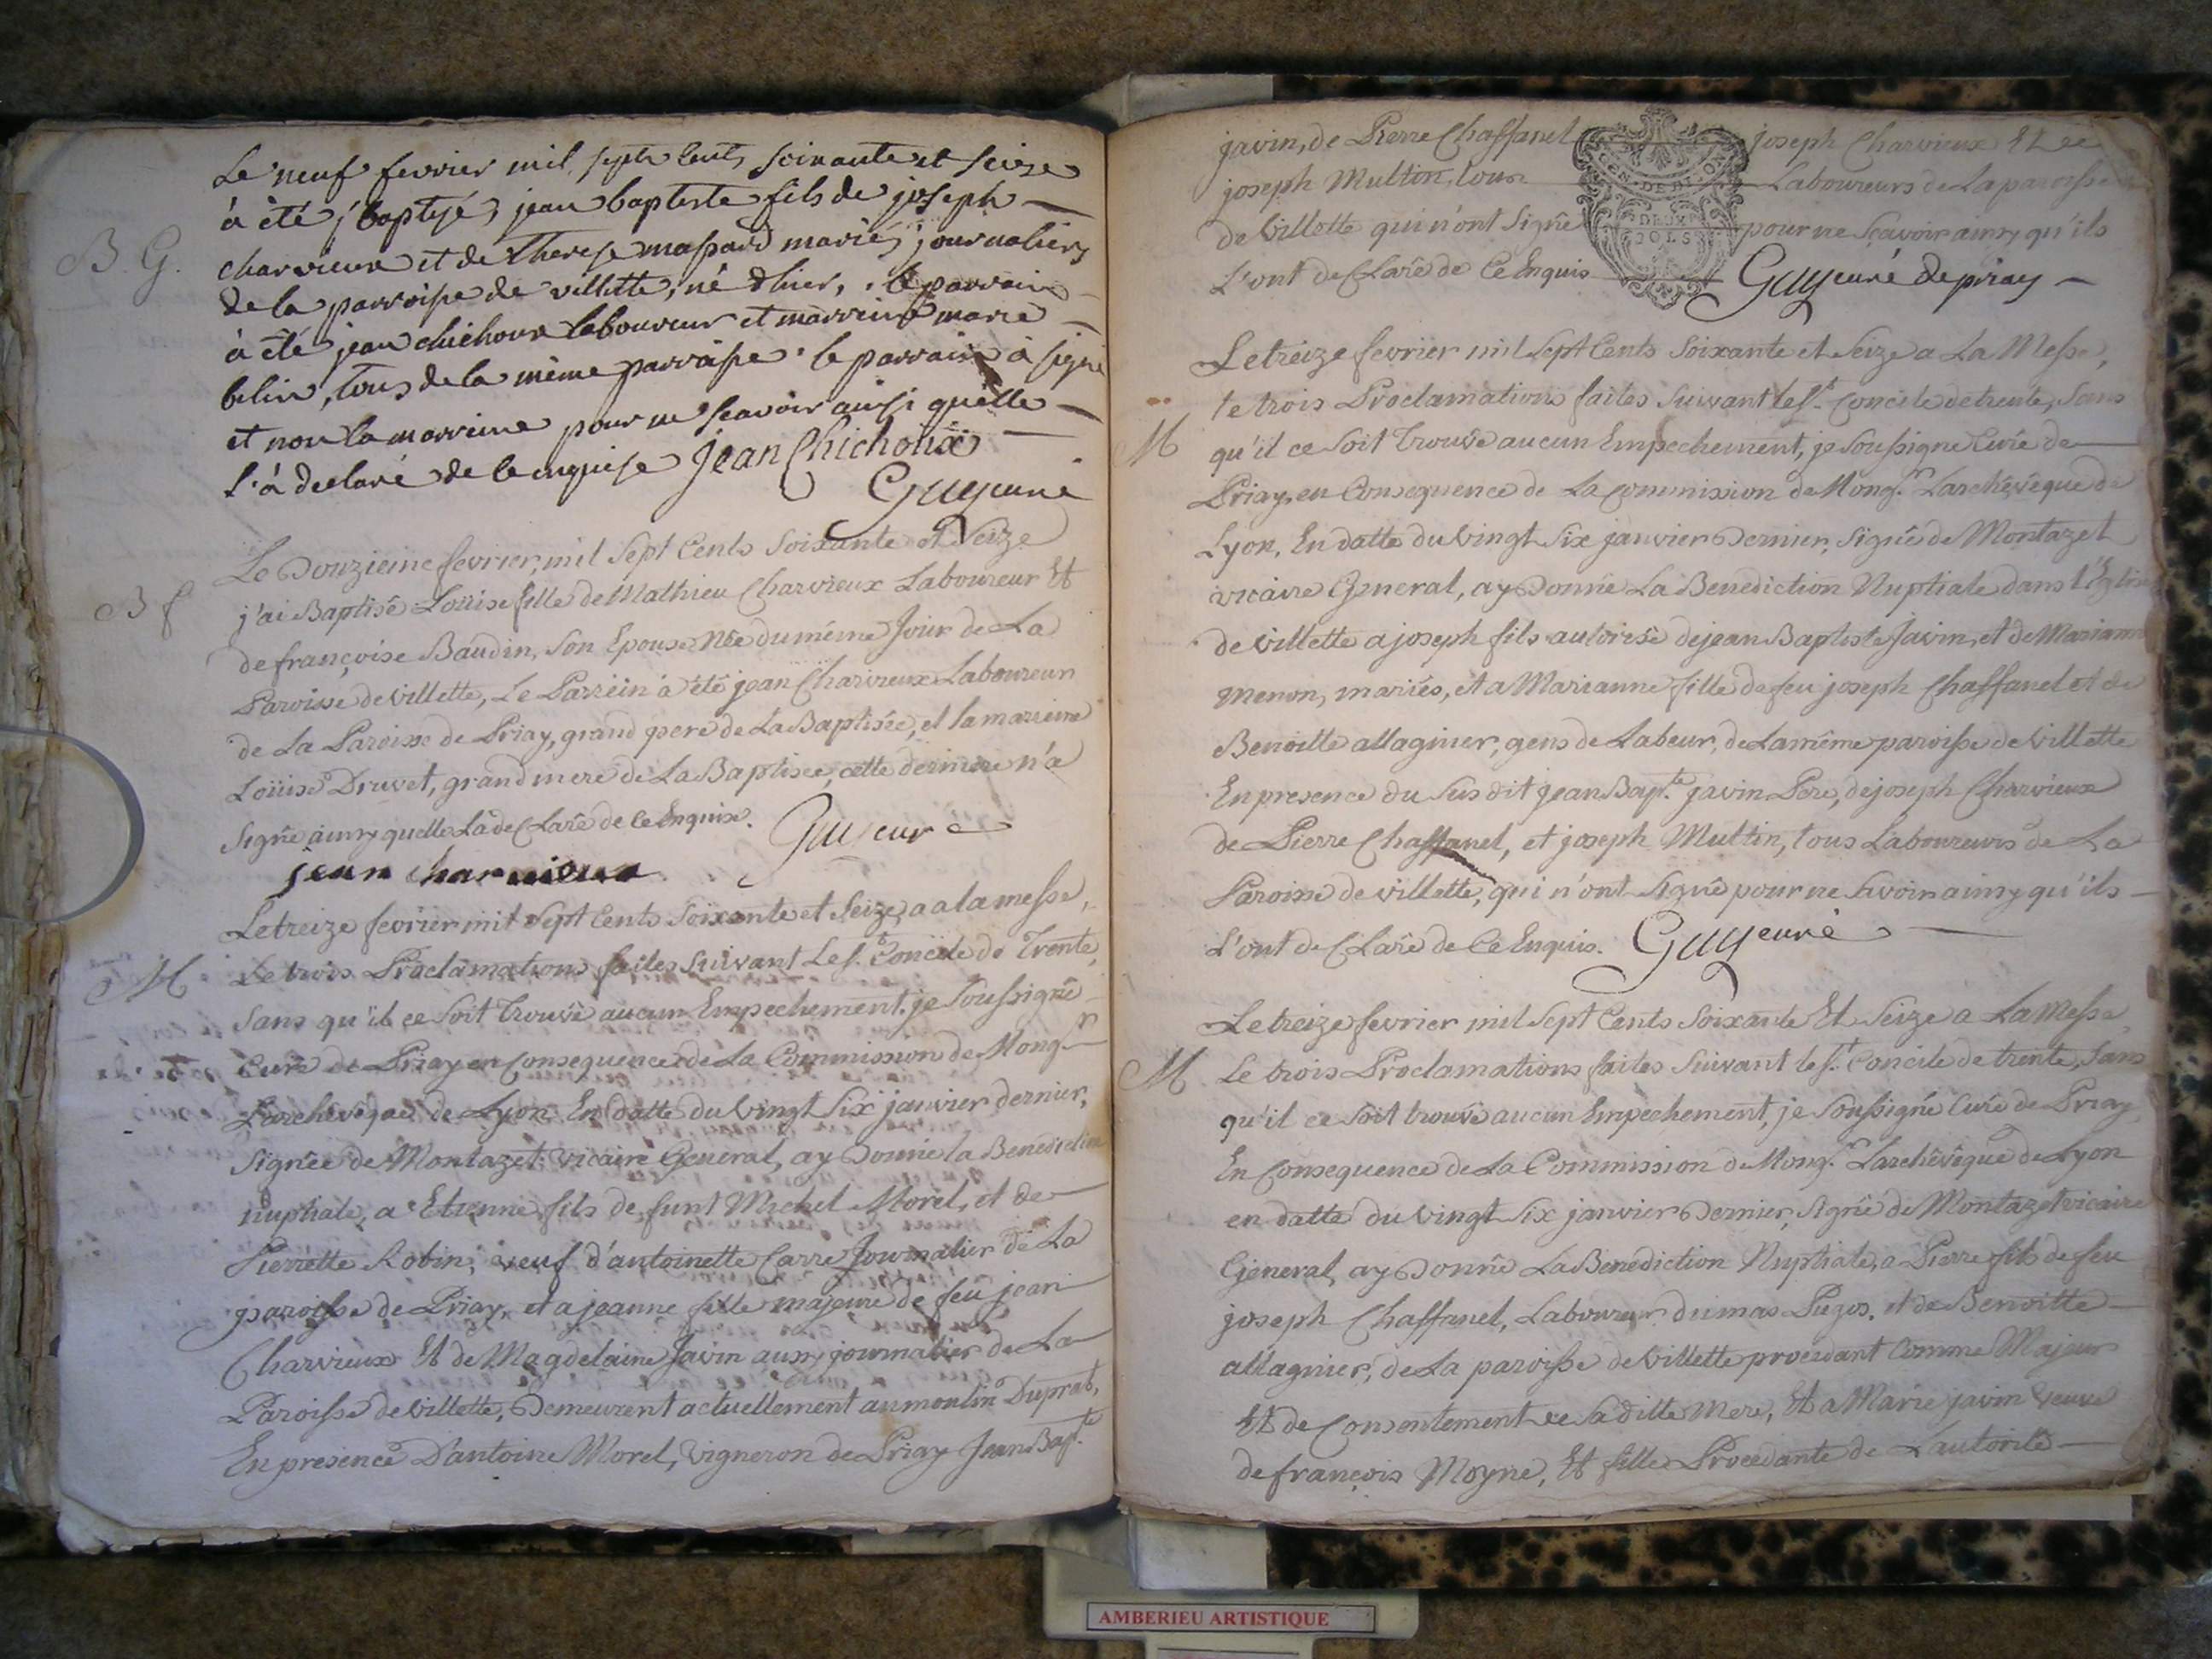 Le neuf fevrier mil sept cents soixante et seize
à été baptisé jean baptiste fils de joseph
B. G.
charvieux et de therese massard mariés journaliers
de la parroisse de villette, né d'hier, le parrain
à été jean chichoux laboureur et marreine marie
belin, tous de la même parroisse. le parrain à signé
et non la marreine pour ne sçavoir ainsi qu'elle
l'à declaré de ce enquise Jean Chichoux
Guy curé
Le Douzieme fevrier, mil Sept Cents Soixante et Seize
B f
j'ai Baptisé Loüise fille de Mathieu Charvieux Laboureur Et
de françoise Baudin, Son Epouse Née du même Jour de La
Paroisse de Villette, Le Parrein a été jean Charvieux Laboureur
de La Paroisse de Priay, grand pere de La Baptisée, et la marreine
Loüise Druvet, grand mere de La Baptisée, cette derniere n'a
Signé ainsy quelle La deClaré de Ce Enquise. Guy curé
jean charvieux
Le treize fevrier mil Sept Cents Soixante et Seize, a a la messe,
M
Le trois Proclamations faites Suivant Le St. Concile de Trente,
Sans qu'il ce Soit Trouvé aucun Empechement. je Soussigné
Curé de Priay en Consequence de La Commission de Mongr
Larchêvêque de Lyon En Datte du Vingt Six janvier dernier,
Signée de Montazet vicaire General, ay Donné la Benediction
nuptiale, a Etienne fils de funt Michel Morel, et de
Pierrette Robin, veuf d'antoinette Carre Journalier de La
paroisse de Priay, et a jeanne fille majeure de feu jean
Charvieux Et de Magdelaine Javin aussy journalier de La
Paroisse de Villette, Demeurent actuellement au moulin Duprat,
En presence D'antoine Morel, Vigneron de Priay Jean Bapte
javin, de Pierre Chaffanel joseph Charvieux Et de
joseph Multin, tous Laboureurs de La paroisse
GEN. DE DIJON
DEUX SOLS
de Villette qui n'ont Signé pour ne Sçavoir ainsy qu'ils
L'ont deClaré de Ce Enquis Guy curé de priay
Le treize fevrier mil Sept Cents Soixante et Seize a La Messe,
te trois Proclamations faites Suivant le St. Concile de trente, Sans
M
qu'il ce Soit Trouvé aucun Empechement, je Soussigné Curé de
Priay, en Consequence de La Commission de Mongr. Larchêvêque de
Lyon, En datte du Vingt Six janvier Dernier, Signée de Montazet
vicaire General, ay Donné La Benediction Nuptiale dans l'Eglise
de Villette a joseph fils autorisé de jean Baptiste Javin, et de Marianne
Menon, mariés, et a Marianne fille de feu joseph Chaffanel et de
Benoitte allagnier, gens de Labeur, de La même paroisse de Villette
En presence du Susdit jean Bapte. javin Pere, de joseph Charvieux
de Pierre Chaffanel, et joseph Multin, tous Laboureurs de La
Paroisse de villette, qui n'ont Signé pour ne Savoir ainsy qu'ils
L'ont deClaré de Ce Enquis. Guy curé
Le treize fevrier mil Sept Cents Soixante Et Seize a La Messe
M
Le trois Proclamations faites Suivant le St. Concile de trente, Sans
qu'il ce Soit trouvé aucun Empechement, je Soussigné Curé de Priay
En Consequence de La Commission de Mongr. Larchêvêque de Lyon
en datte du Vingt Six janvier Dernier, Signée de Montazet vicaire
General, ay Donné La Benediction Nuptiale, a Pierre fils de feu
joseph Chaffanel, Laboureur du mas Piezos, et de Benoitte
allagnier, de La paroisse de Villette procedant Comme Majeur
Et de Consentement de Sa ditte Mere, Et a Marie javin Veuve
de françois Moyne, Et fille Procedante de L'autorité
AMBERIEU ARTISTIQUE